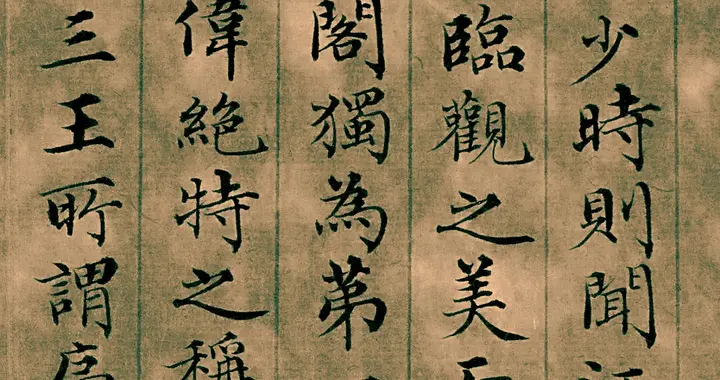 少時則聞江
臨觀之美而
閣獨為第一
偉絕特之稱
三王所謂序